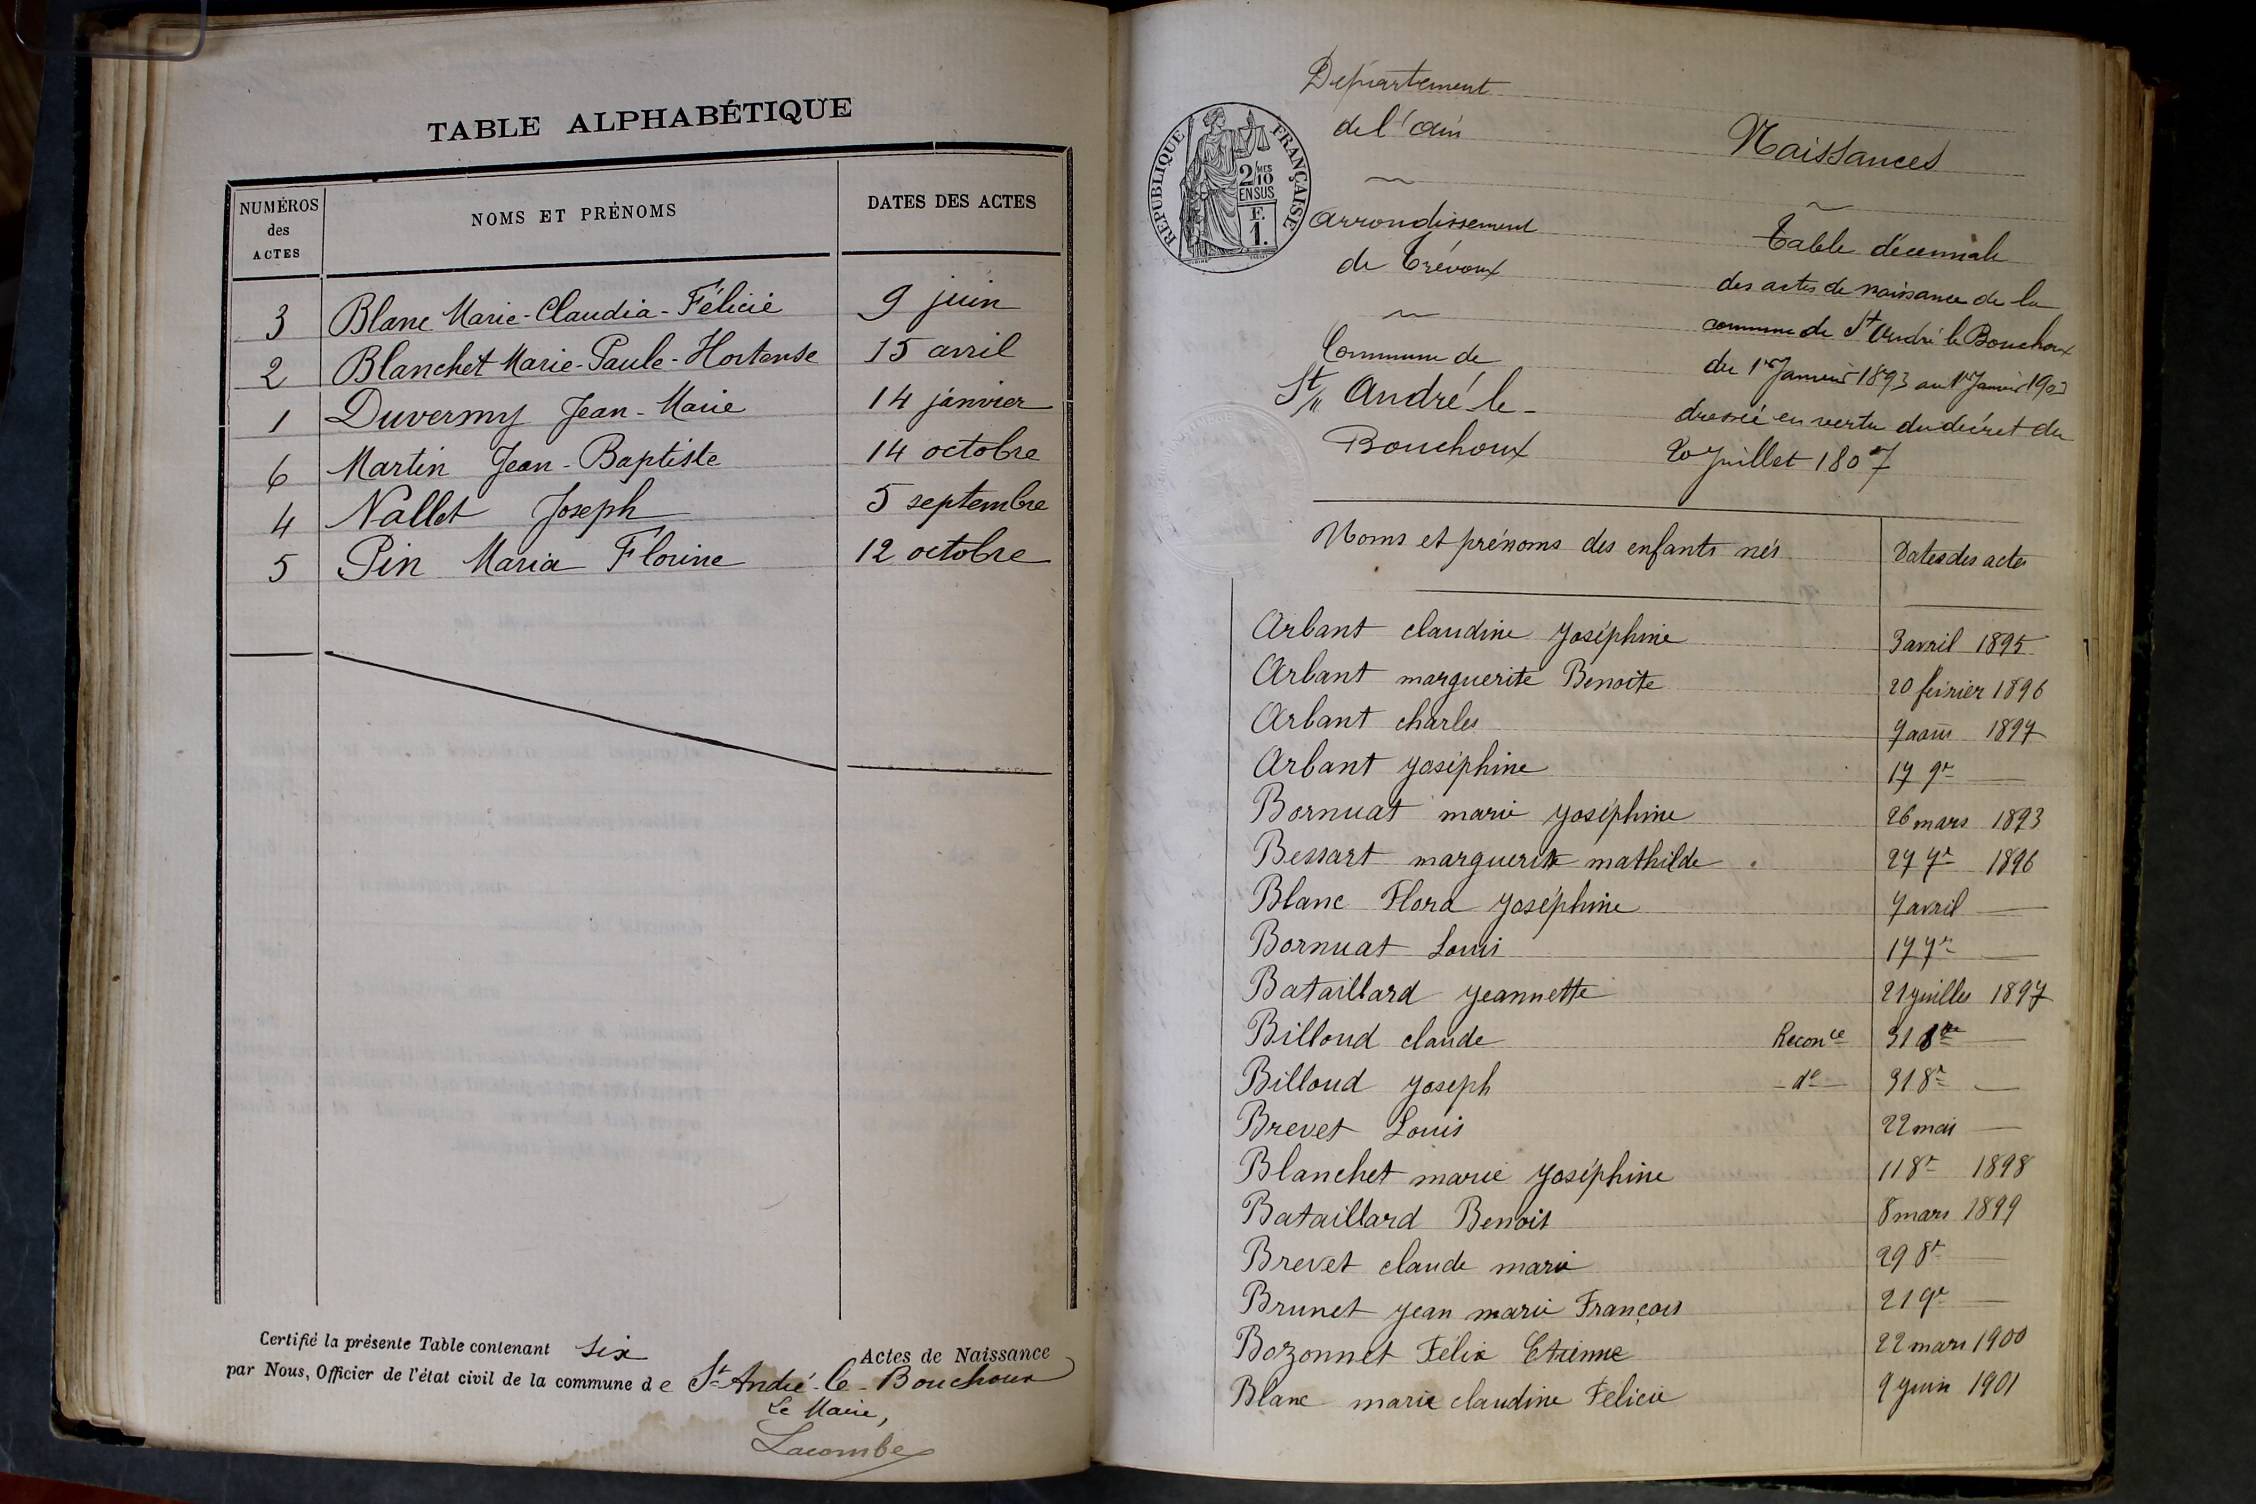 TABLE ALPHABÉTIQUE
NUMÉROS des ACTES NOMS ET PRÉNOMS DATES DES ACTES
3 Blanc Marie-Claudia-Félicie 9 juin
2 Blanchet Marie-Paule-Hortense 15 avril
1 Duvermy Jean-Marie 14 janvier
6 Martin Jean-Baptiste 14 octobre
4 Nallet Joseph 5 septembre
5 Pin Maria Florine 12 octobre
Certifié la présente Table contenant six Actes de Naissance
par Nous, Officier de l'état civil de la commune de St André-le-Bouchoux
Le Maire,
Lacombe
Département
de l'ain
RÉPUBLIQUE FRANÇAISE
2/10 MES
EN SUS
F.
1.
arrondissement
de Trévoux
Commune de
St André le-
Bouchoux
Naissances
Table décennale
des actes de naissance de la
commune de St André le Bouchoux
du 1er Janvier 1893 au 1er Janvier 1903
dressée en vertu du décret du
20 Juillet 1807
Noms et prénoms des enfants nés Dates des actes
Arbant claudine Joséphine 3 avril 1895
Arbant marguerite Benoite 20 février 1896
Arbant charles 9 août 1897
Arbant Joséphine 17 9re —
Bornuat marie Joséphine 26 mars 1893
Bessart marguerite mathilde 27 7re 1896
Blanc Flora Joséphine 7 avril —
Bornuat Louis 17 7re —
Bataillard Jeannette 21 juillet 1897
Billoud claude Reconce 31 8re —
Billoud Joseph - do - 31 8re —
Brevet Louis 22 mai —
Blanchet marie Joséphine 11 8re 1898
Bataillard Benoit 8 mars 1899
Brevet claude marie 29 8re —
Brunet Jean marie François 21 9re —
Bozonnet Félix Etienne 22 mars 1900
Blanc marie claudine Félicie 9 juin 1901